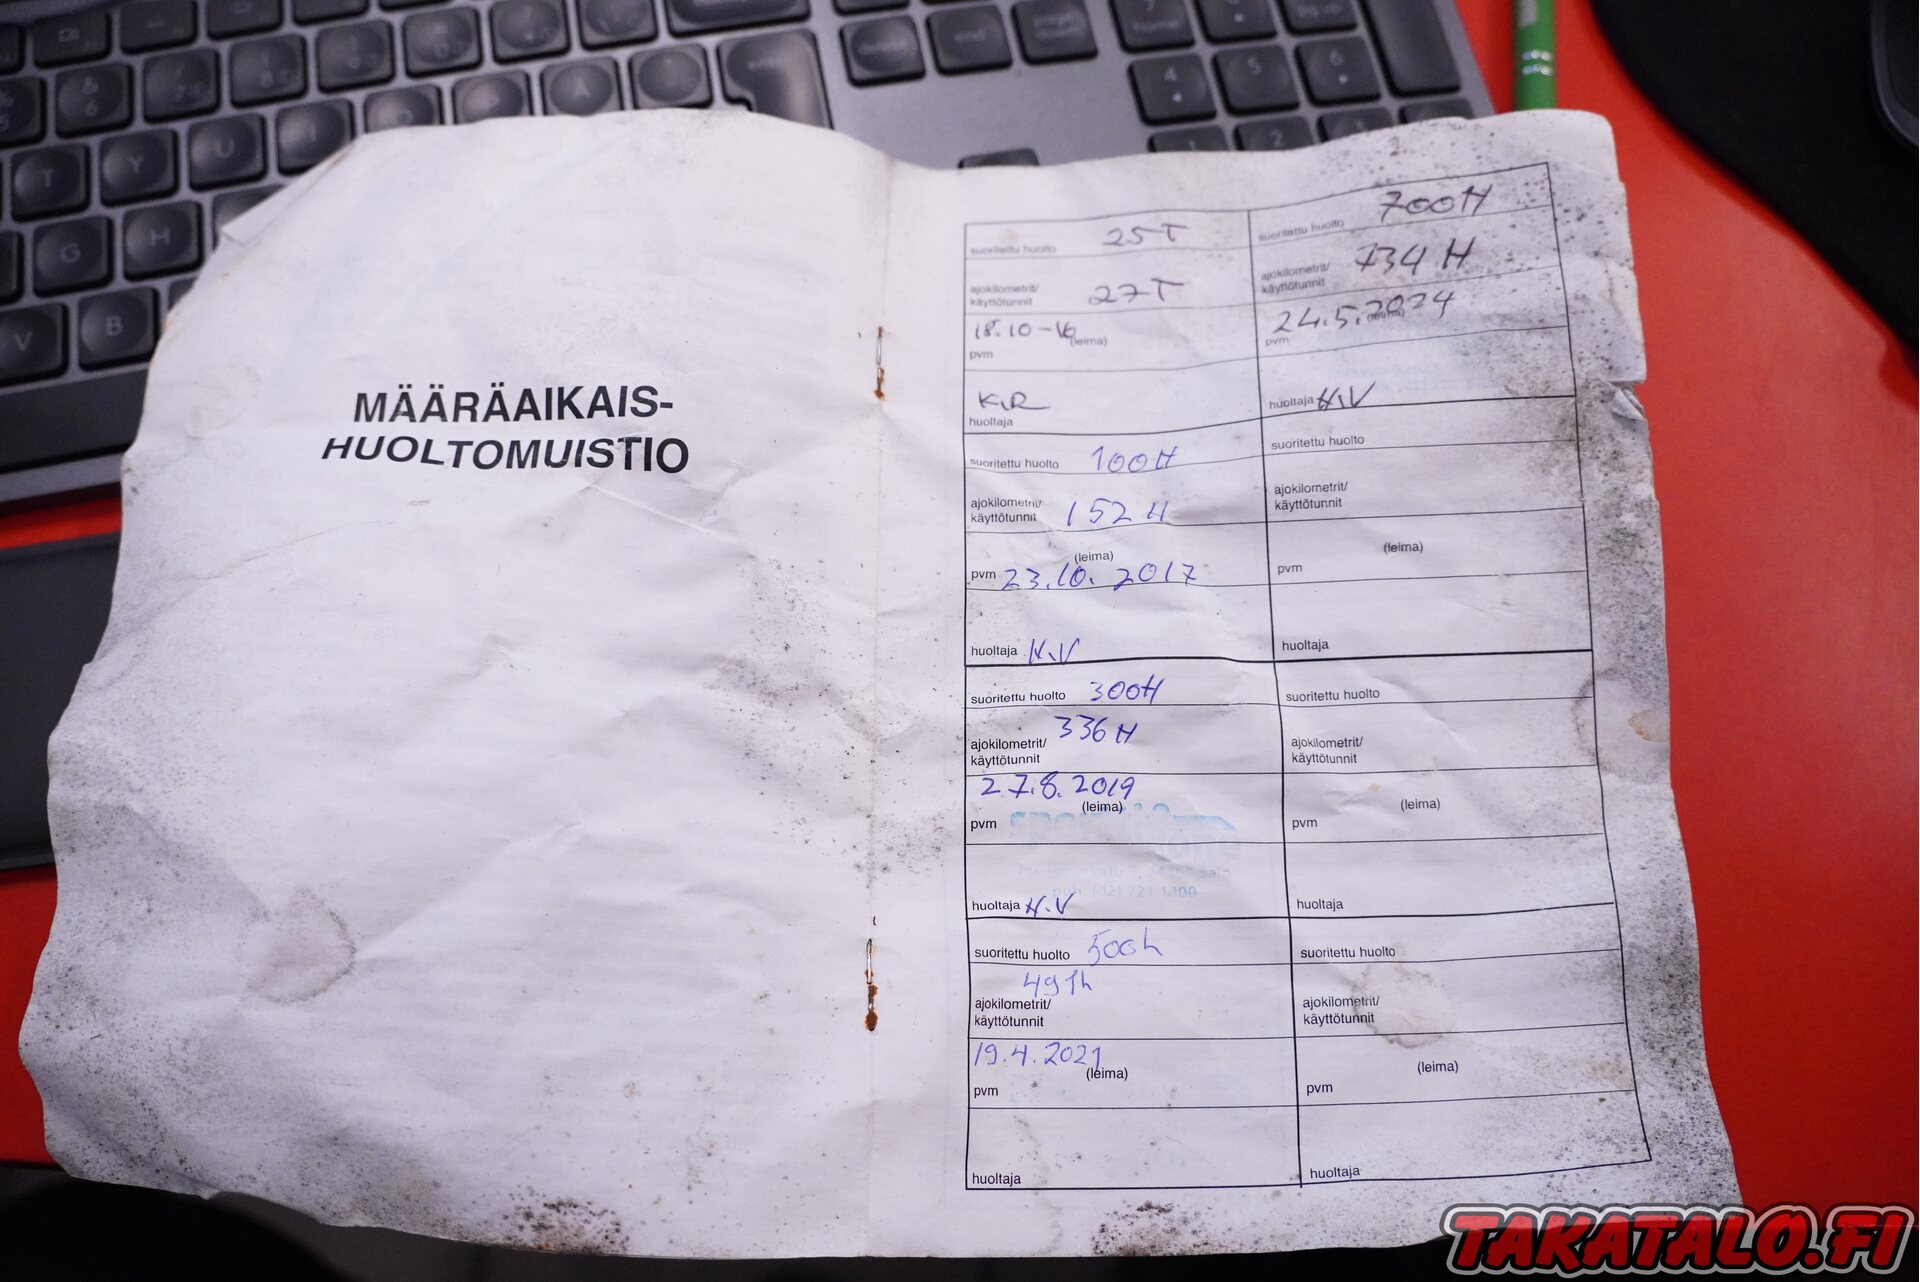 MÄÄRÄAIKAIS-
HUOLTOMUISTIO
suoritettu huolto 25T
ajokilometrit/
käyttötunnit 27T
18.10-16
(leima)
pvm
K.R
huoltaja
suoritettu huolto 100H
ajokilometrit/
käyttötunnit 152 H
(leima)
pvm 23.10. 2017
huoltaja H.V
suoritettu huolto 300H
336 H
ajokilometrit/
käyttötunnit
27.8.2019
(leima)
pvm
puh. (02) 721 1400
huoltaja H.V
suoritettu huolto 500h
491h
ajokilometrit/
käyttötunnit
19.4.2021
(leima)
pvm
huoltaja
suoritettu huolto 700H
ajokilometrit/ 734 H
käyttötunnit
24.5.2024
(leima)
pvm
huoltaja H.V
suoritettu huolto
ajokilometrit/
käyttötunnit
(leima)
pvm
huoltaja
suoritettu huolto
ajokilometrit/
käyttötunnit
(leima)
pvm
huoltaja
suoritettu huolto
ajokilometrit/
käyttötunnit
(leima)
pvm
huoltaja
TAKATALO.FI